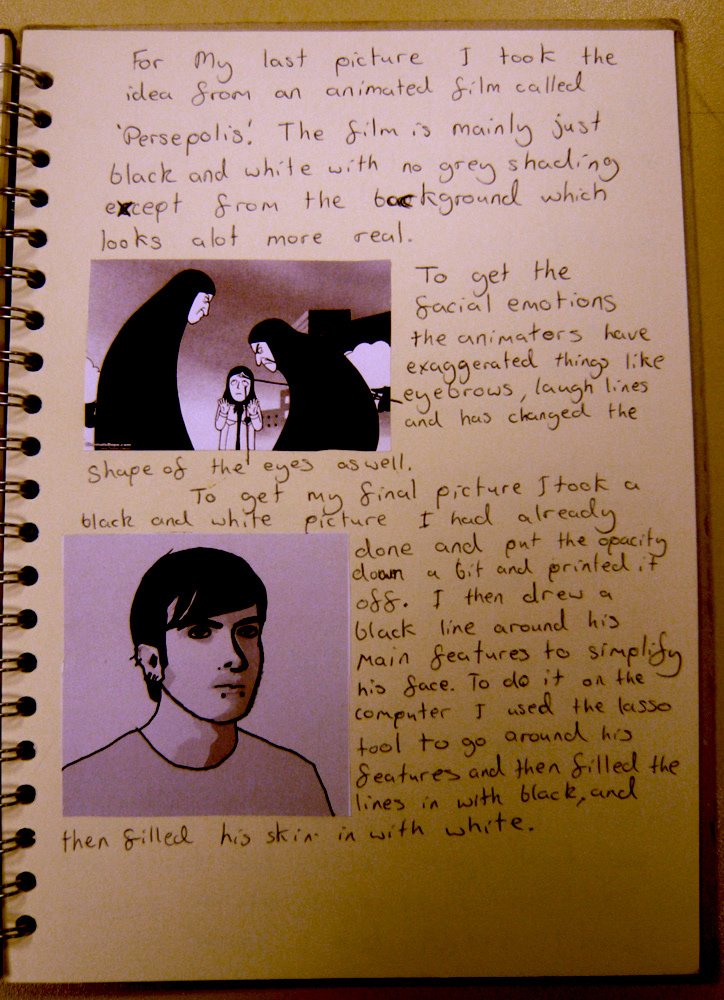 For My last picture I took the
idea from an animated film called
'Persepolis'. The film is mainly just
black and white with no grey shading
except from the background which
looks alot more real.
To get the
facial emotions
the animators have
exaggerated things like
eyebrows, laugh lines
and has changed the
shape of the eyes as well.
To get my final picture I took a
black and white picture I had already
done and put the opacity
down a bit and printed it
off. I then drew a
black line around his
main features to simplify
his face. To do it on the
computer I used the lasso
tool to go around his
features and then filled the
lines in with black, and
then filled his skin in with white.